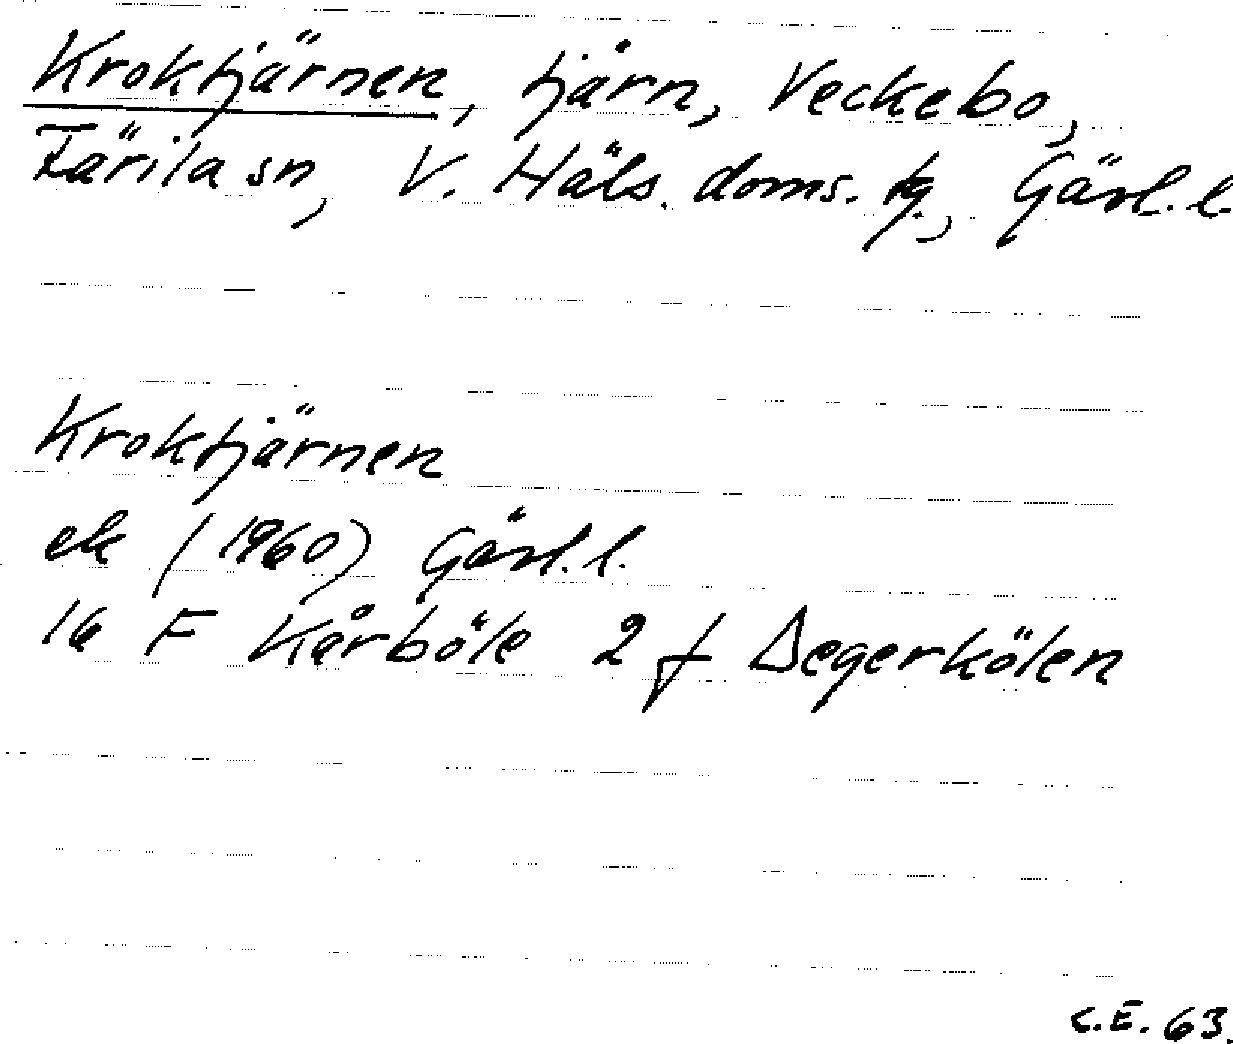 Kroktjärnen, tjärn, Veckebo,
Färila sn, V. Häls. doms. tg., Gävl. l.
Kroktjärnen
ek (1960) Gävl. l.
16 F Kårböle 2 f Degerkölen
C.E. 63.